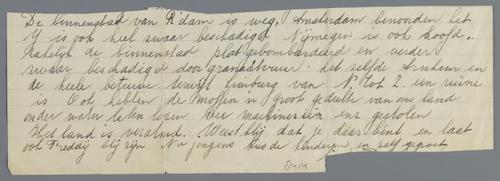 De binnenstad van R'dam is weg, Amsterdam benoorden het
Y is ook heel zwaar beschadigd Nijmegen is ook hoofd..
zakelijk de binnenstad platgebombardeerd en verder
zwaar beschadigd door granaatvuur. het zelfde Arnhem en
de heele betuwe terwijl Limburg van N. tot Z. een ruïne
is Ook hebben de Moffen n groot gedeelte van ons land
onder water laten loopen machinerieën enz gestolen
Het land is verarmd. Weest blij dat je daar bent en laat
ook Freddy blij zijn. Nu jongens kus de kinderen en zelf gegroet